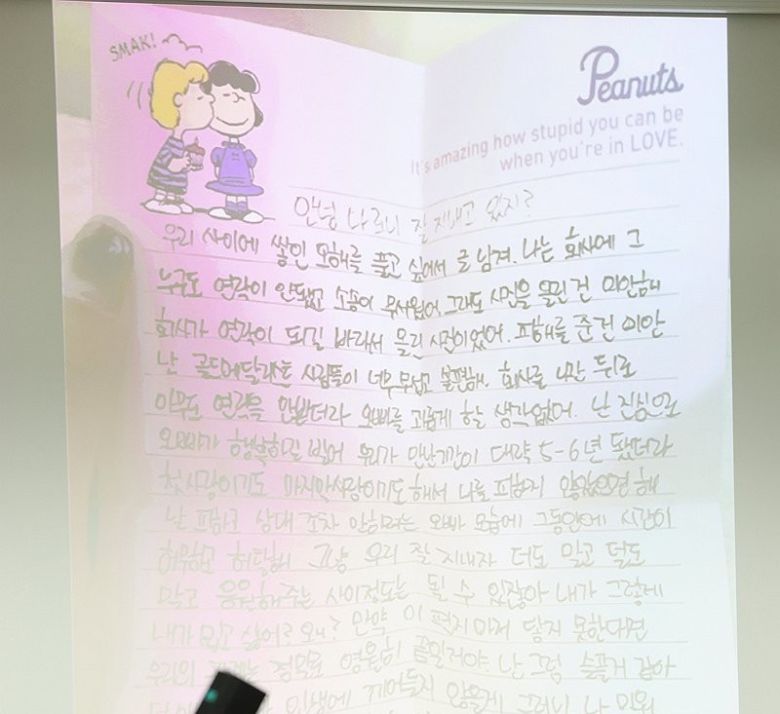 SMAK!
Peanuts
It's amazing how stupid you can be
when you're in LOVE.
안녕 나르니 잘 지내고 있지?
우리 사이에 쌓인 오해를 풀고 싶어서 글 남겨. 나는 회사에 그
누구도 연락이 안됐고 소송이 무서웠어 그래도 사진을 올린 건 미안해
회사가 연락이 되길 바라서 올린 사진이었어. 피해를 준건 미안
난 골드메달리스트 사람들이 너무 무섭고 불편해. 회사를 나간 뒤로
아무도 연락을 안받더라 오빠를 괴롭게 할 생각없어. 난 진심으로
오빠가 행복하길 빌어 우리가 만난기간이 대략 5-6년 됐더라
첫사랑이기도 마지막사랑이기도해서 나를 피하지 않았으면 해
날 피하고 상대 조차 안하려는 오빠 모습에 그동안에 시간이
허무하고 허탈해 그냥 우리 잘 지내자 더도 말고 덜도
말고 응원해주는 사이정도는 될 수 있잖아 내가 그렇게
내가 밉고 싫어? 왜? 만약 이 편지마저 닿지 못한다면
우리의 관계는 정말로 영원히 끝일거야 난 그럼 슬플거 같아
인생에 끼어들지 않을게 그러니 나 미워